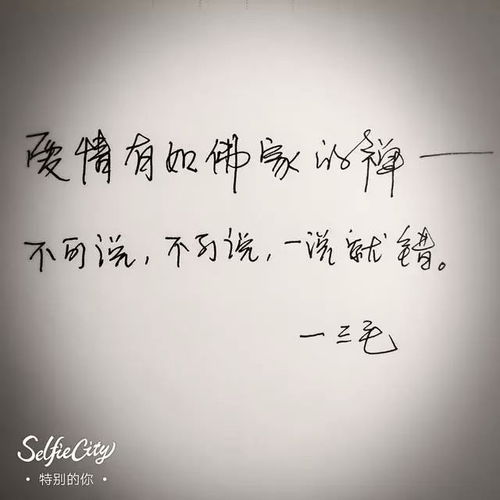 爱情有如佛家的禅——
不可说，不可说，一说就错。
—三毛
SelfieCity
· 特别的你 ·